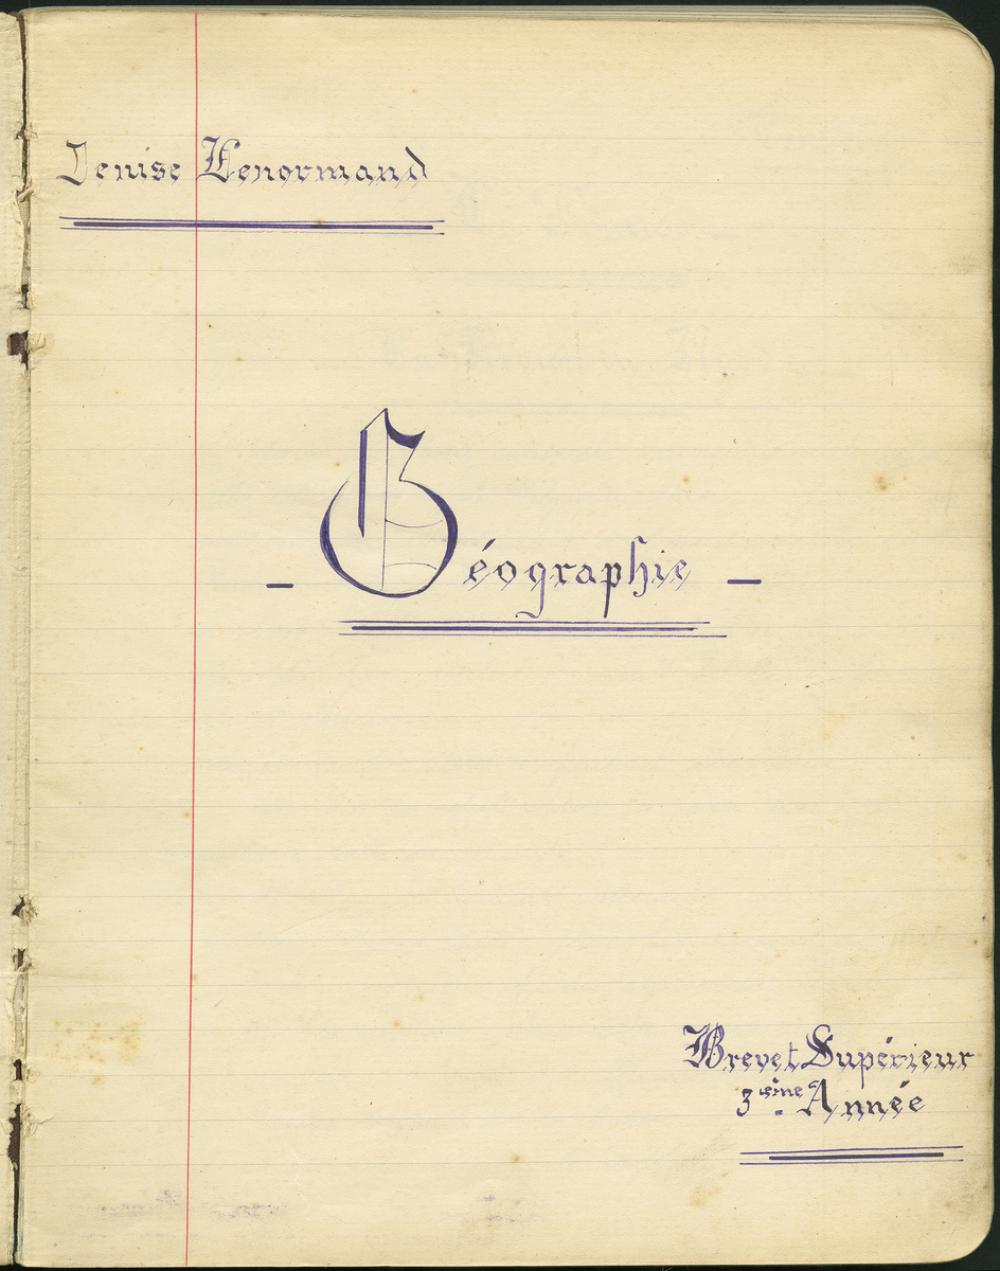 Denise Lenormand
- Géographie -
Brevet Supérieur
3ème Année